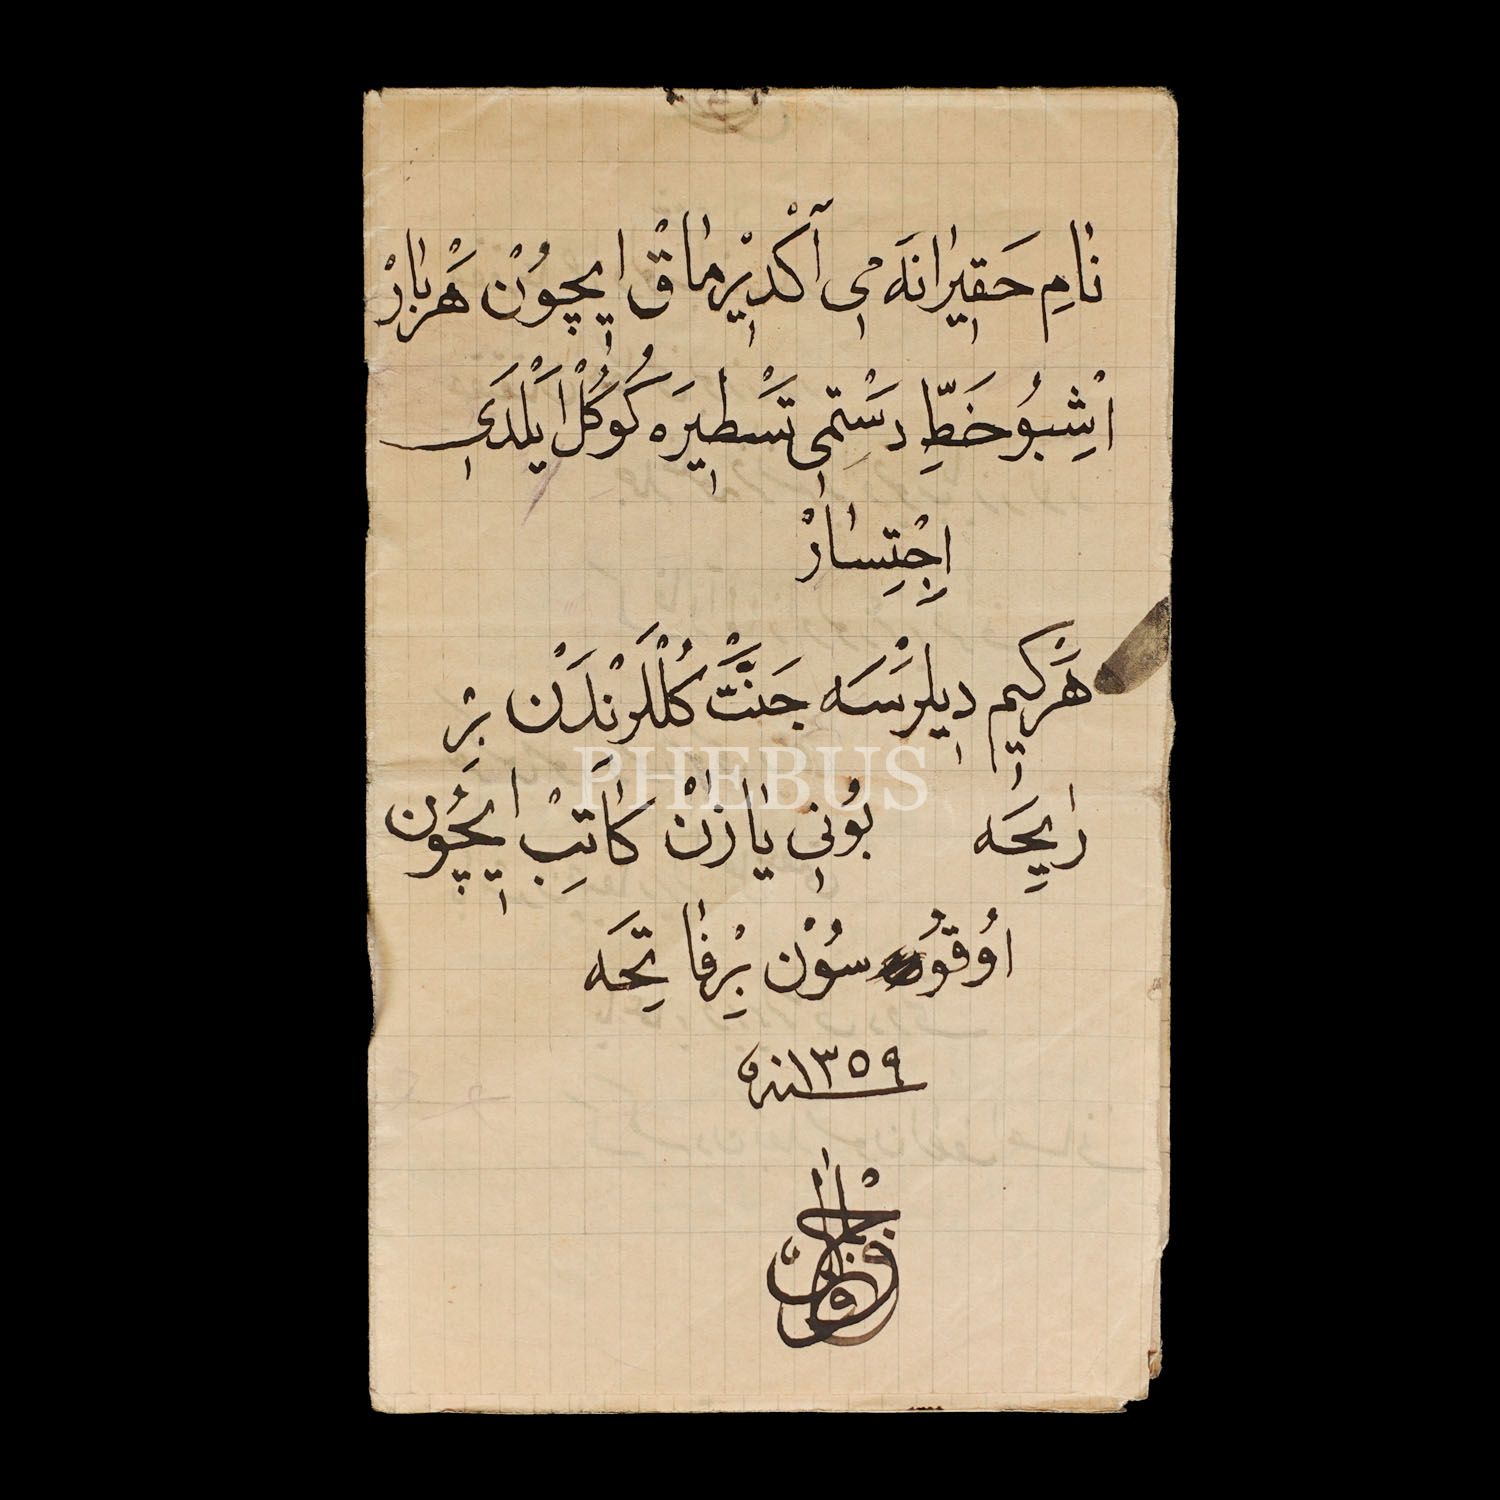 نَامِ حَقِيرَانَه مِى آكْدِيْرمَاقْ اِيچُوْنْ هَرْبَارْ
اِشْبُو خَطِّ دَسْتِمِى تَسْطِيرَه كُوكُلْ اَيْلَدِى
اِجْتِسَارْ
هَرْكِيمْ دِيلَرْسَه جَنَّتْ كُلْلَرِنْدَنْ بِرْ
رَايِحَه بُونِى يَازَنْ كَاتِبْ اِيچُونْ
اُوقُو سُوْنْ بِرْفَاتِحَه
سنه ١٣٥٩
PHEBUS